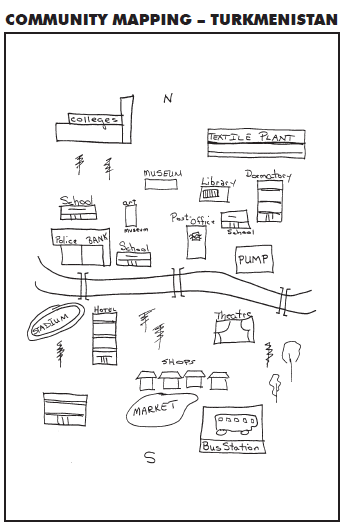 COMMUNITY MAPPING – TURKMENISTAN
N
colleges
TEXTILE PLANT
MUSEUM
Library
Dormatory
School
art
museum
Post Office
School
Police BANK
School
PUMP
STADIUM
HOTEL
Theatre
SHOPS
MARKET
Bus Station
S